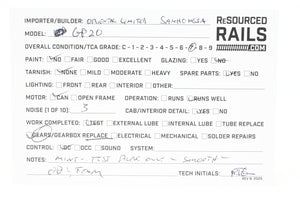 IMPORTER/BUILDER: ORIENTAL LIMITED SAMHONGSA
RESOURCED RAILS .COM
MODEL: GP20
OVERALL CONDITION/TCA GRADE: C-1-2-3-4-5-6-7-8-9
PAINT: NO FAIR GOOD EXCELLENT GLAZING: YES NO
TARNISH: NONE MILD MODERATE HEAVY SPARE PARTS: YES NO
LIGHTING: FRONT REAR INTERIOR OTHER:
MOTOR: CAN OPEN FRAME OPERATION: RUNS RUNS WELL
NOISE (1 OF 10) 3 CAB/INTERIOR DETAIL: YES NO
WORK COMPLETED: TEST EXTERNAL LUBE INTERNAL LUBE TUBE REPLACE
GEARS/GEARBOX REPLACE ELECTRICAL MECHANICAL SOLDER REPAIRS
CONTROL: DC DCC SOUND SYSTEM
NOTES: MINT - TEST RUN ONLY - SMOOTH -
TECH INITIALS:
REV 9-2025